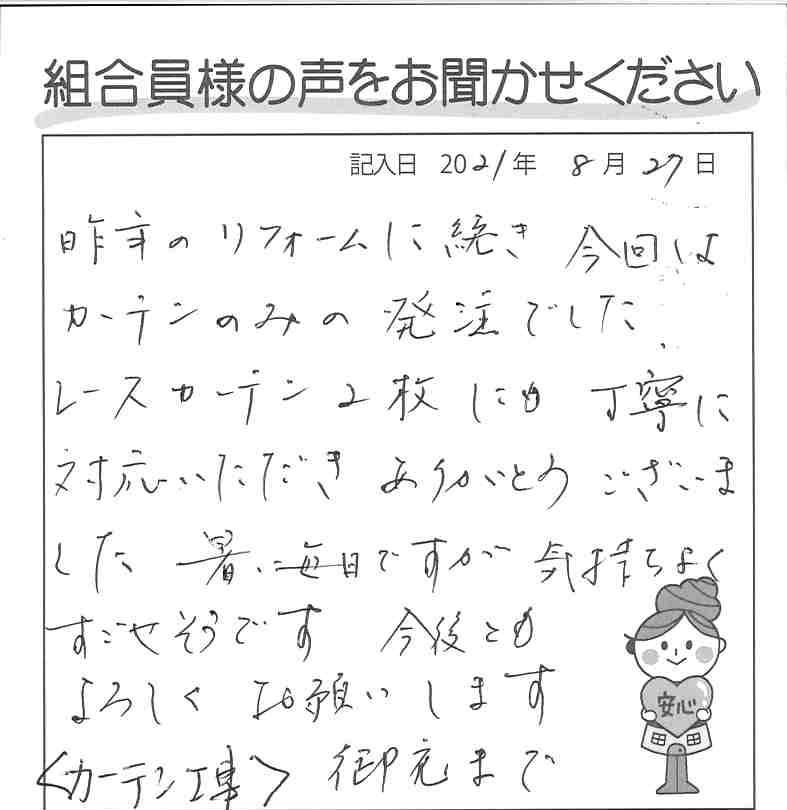 組合員様の声をお聞かせください
記入日 2021年 8月27日
昨年のリフォームに続き 今回は
カーテンのみの発注でした
レースカーテン2枚にも丁寧に
対応いただきありがとうございま
した 暑い毎日ですが 気持ちよく
すごせそうです 今後とも
よろしく お願いします
安心
<カーテン工事> 御宅まで